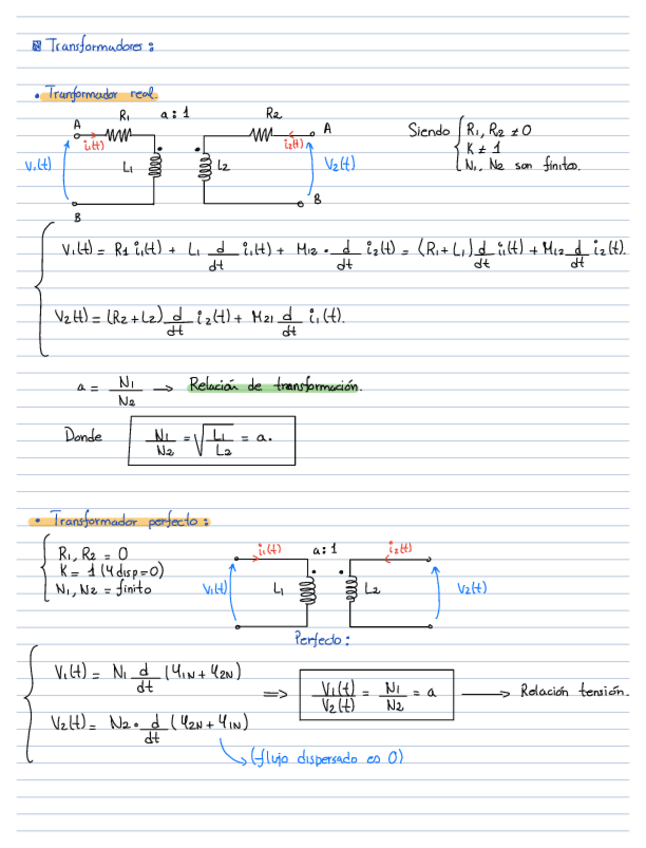 Transformadores:
• Tranformador real.
R₁ a:1 R₂
A A
i₁(t) i₂(t)
V₁(t) L₁ L₂ V₂(t)
B B
Siendo { R₁, R₂ ≠ 0
K ≠ 1
N₁, N₂ son finitos.
V₁(t) = R1 i₁(t) + L₁ d/dt i₁(t) + M₁₂ · d/dt i₂(t) = (R₁+L₁) d/dt i₁(t) + M₁₂ d/dt i₂(t).
V₂(t) = (R₂+L₂) d/dt i₂(t) + M₂₁ d/dt i₁(t).
a = N₁/N₂ → Relación de transformación.
Donde N₁/N₂ = √(L₁/L₂) = a.
• Transformador perfecto:
R₁, R₂ = 0
K = 1 (φ disp=0)
N₁, N₂ = finito
i₁(t) a:1 i₂(t)
V₁(t) L₁ L₂ V₂(t)
Perfecto:
V₁(t) = N₁ d/dt (φ₁N + φ₂N) => V₁(t)/V₂(t) = N₁/N₂ = a → Relación tensión.
V₂(t) = N₂ · d/dt (φ₂N + φ₁N)
(flujo dispersado es 0)